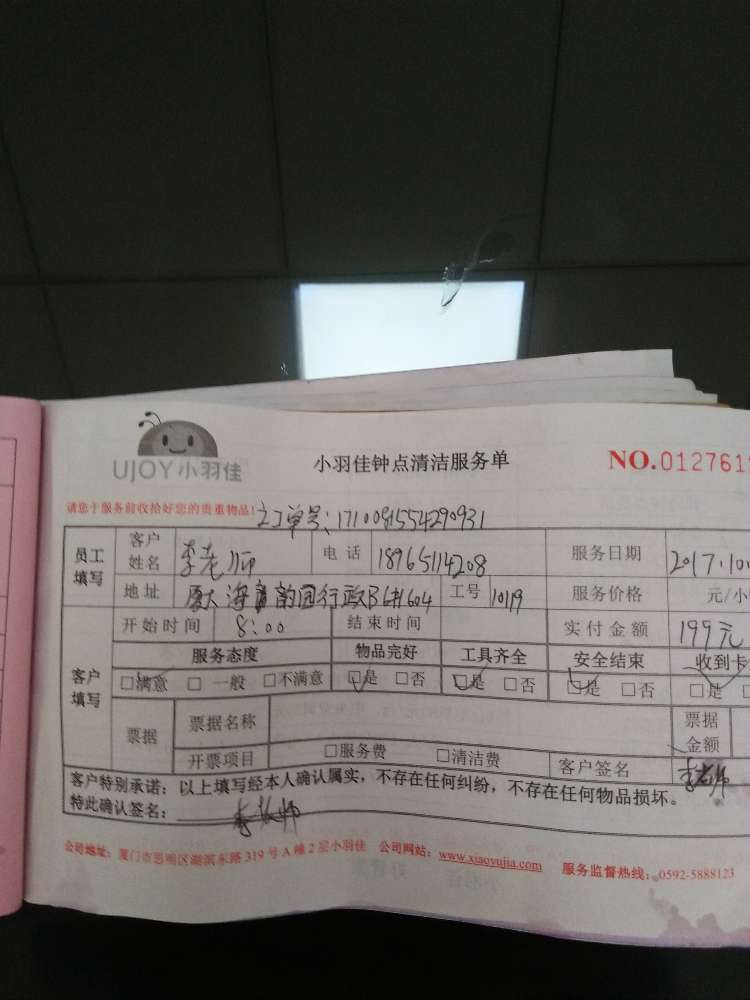 UJOY小羽佳
小羽佳钟点清洁服务单
NO.012761
请您于服务前收拾好您的贵重物品! 订单号:1710081554290931
员工填写 客户姓名 李老师 电话 18965114208 服务日期 2017.10
地址 厦大海韵园行政B6#604 工号 10119 服务价格 元/小
客户填写 开始时间 8:00 结束时间 实付金额 199元
服务态度 物品完好 工具齐全 安全结束 收到卡
□满意 □一般 □不满意 □是 □否 □是 □否 □是 □否 □是
票据 票据名称 票据金额
开票项目 □服务费 □清洁费 客户签名 李老师
客户特别承诺：以上填写经本人确认属实，不存在任何纠纷，不存在任何物品损坏。
特此确认签名： 李老师
公司地址：厦门市思明区湖滨东路319号A幢2层小羽佳 公司网站：www.xiaoyujia.com 服务监督热线：0592-5888123